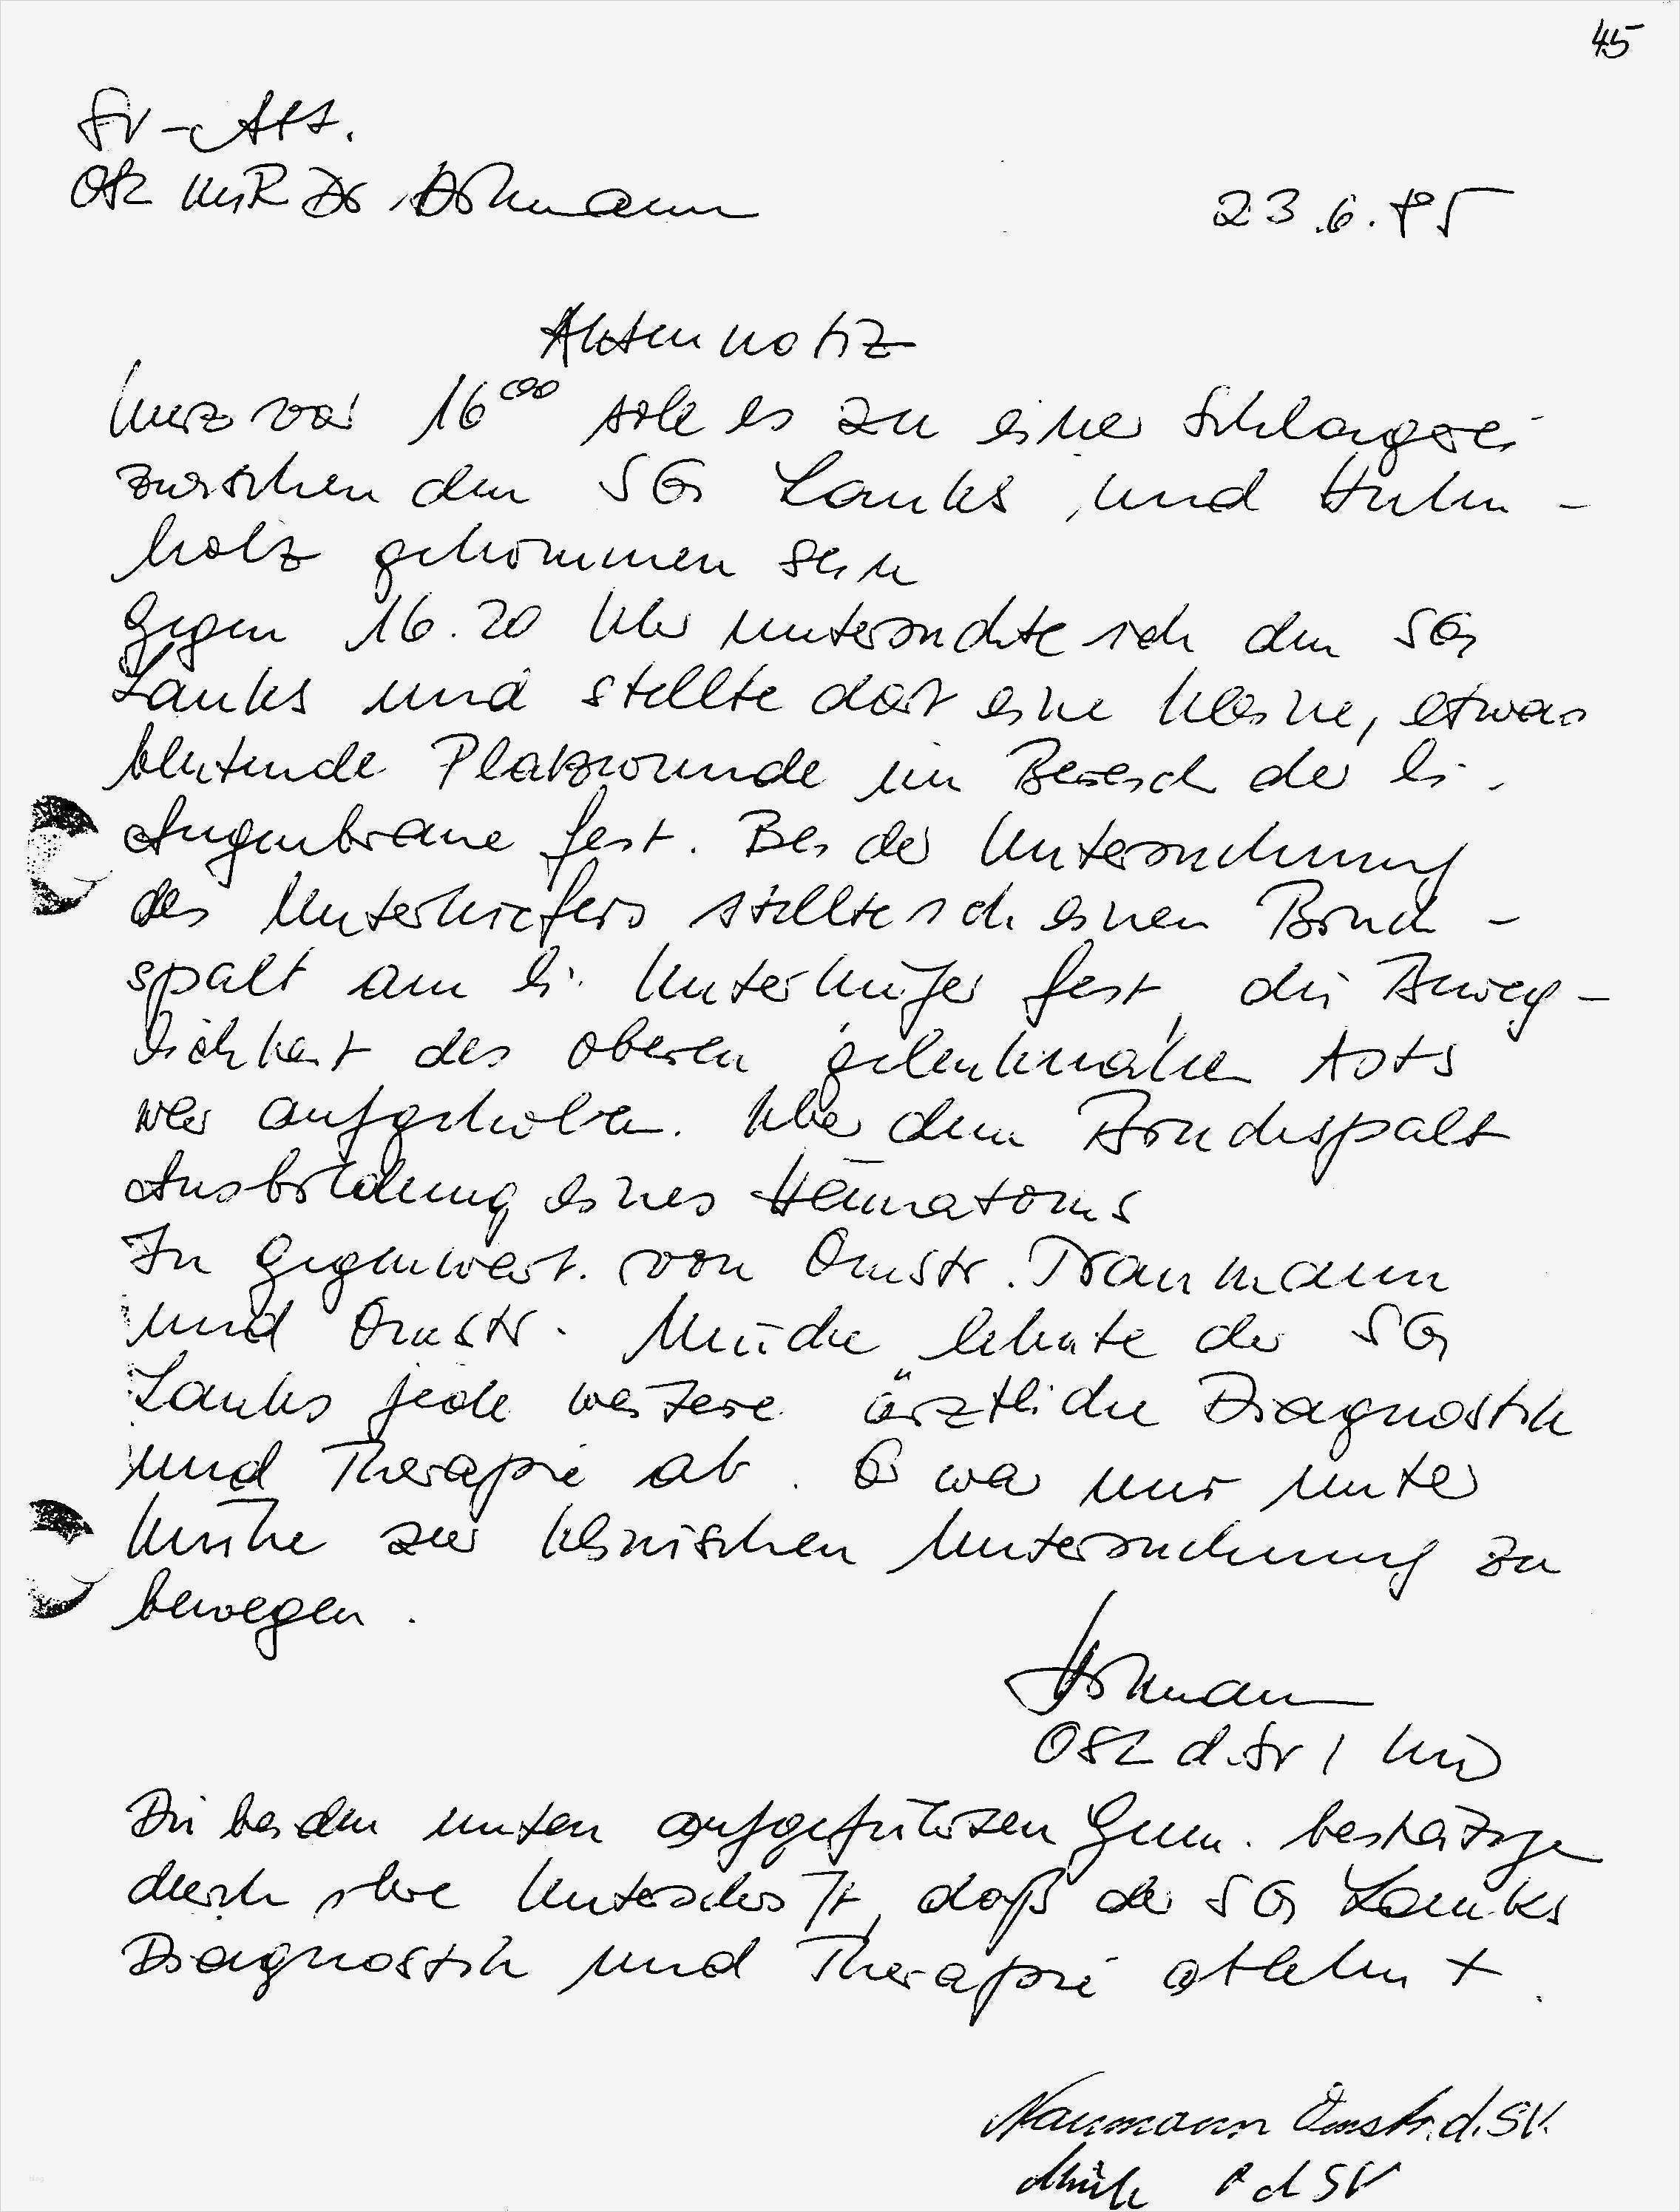 45
SV-Abt.
OSL MR Dr.
23.6.85
Aktennotiz
Kurz vor 16⁰⁰ soll es zu einer Schlägerei
zwischen den SG Lauks und Huhn-
holz gekommen sein
Gegen 16.20 Uhr untersuchte ich den SG
Lauks und stellte dort eine kleine, etwas
blutende Platzwunde im Bereich der li.
Augenbraue fest. Bei der Untersuchung
des Unterkiefers stellte ich einen Bruch-
spalt am li. Unterkiefer fest, die Beweg-
lichkeit des oberen gelenknahen Asts
war aufgehoben. Über dem Bruchspalt
Ausbildung eines Hämatoms
In Gegenwart von Omstr. Naumann
und Omstr. lehnte der SG
Lauks jede weitere ärztliche Diagnostik
und Therapie ab. Er war nur unter
Mühe zur klinischen Untersuchung zu
bewegen.
OSL d. SV
Die beiden unten aufgeführten Gen. bestätigen
durch ihre Unterschrift, daß der SG Lauks
Diagnostik und Therapie ablehnt.
Naumann Omstr. d. SV.
d SV